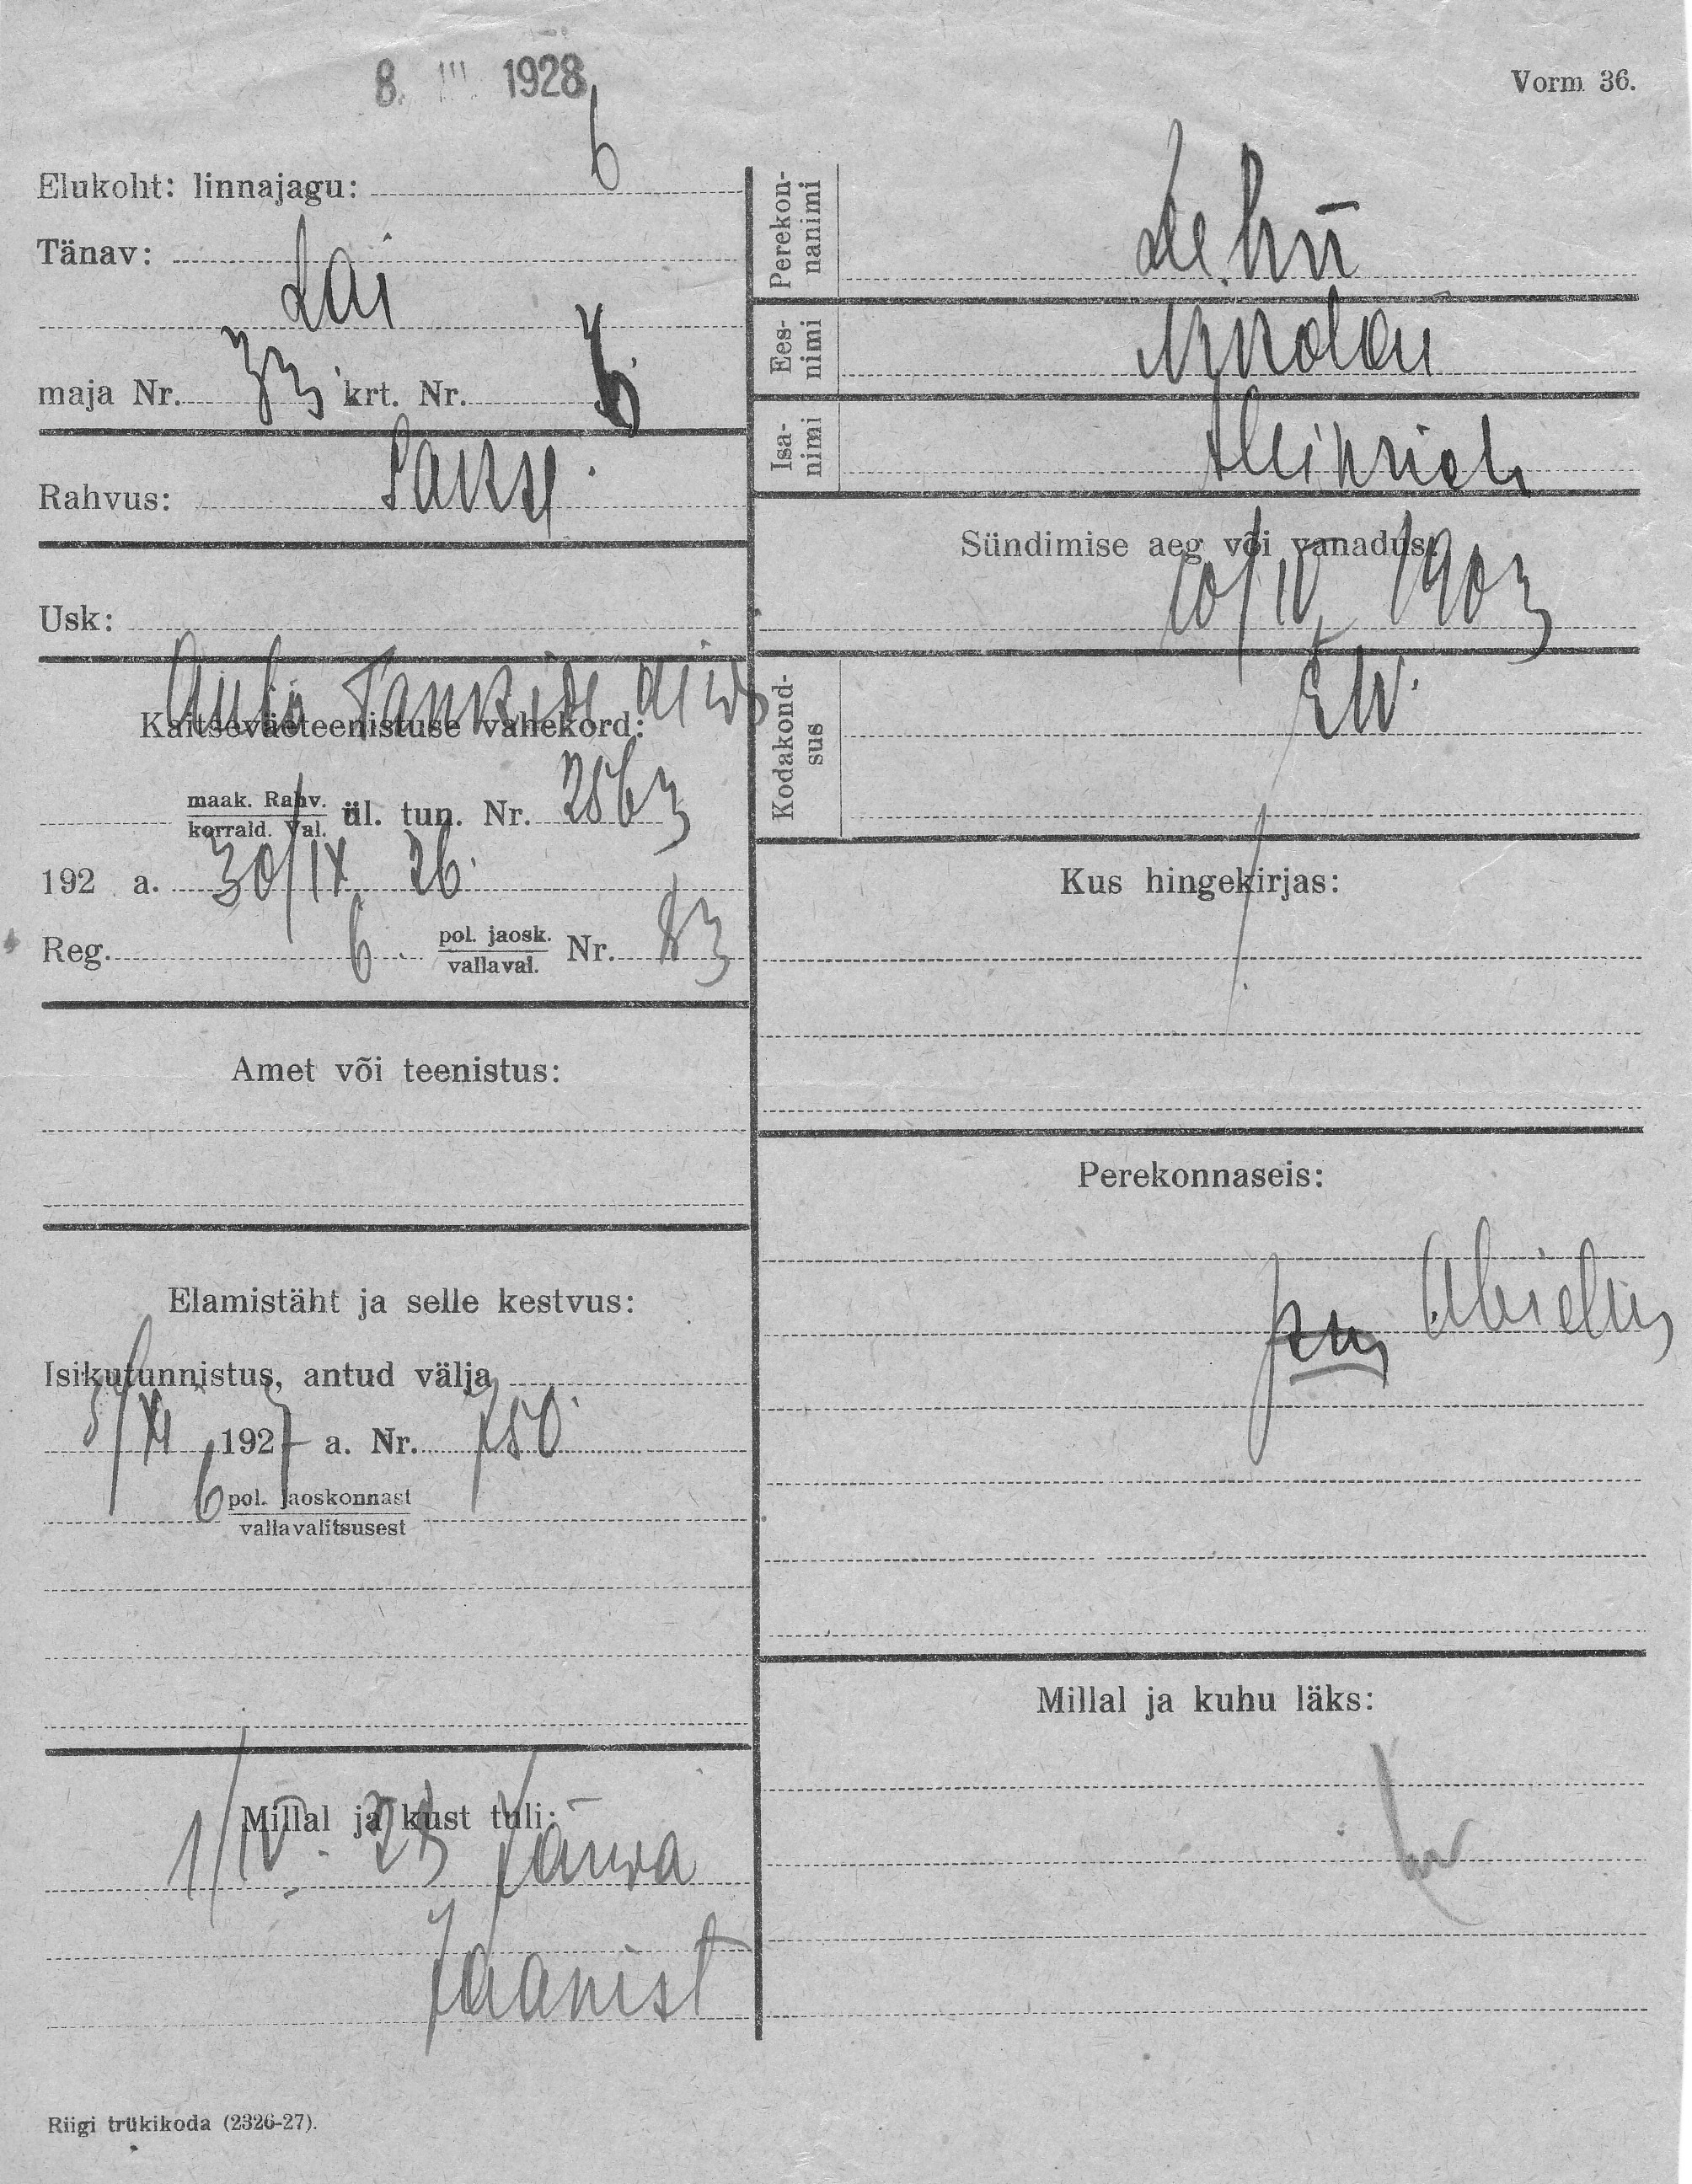 8. III 1928
Vorm 36.
Elukoht: linnajagu: 6
Tänav:
Lai
maja Nr. 33 krt. Nr. 6
Rahvus: Saksa
Usk:
Auto Tankide
Kaitseväeteenistuse vahekord:
maak. Rahv.
korrald. Val. ül. tun. Nr. 2863
192 a. 30/IX 26.
Reg. 6 pol. jaosk.
vallaval. Nr. 83
Amet või teenistus:
Elamistäht ja selle kestvus:
Isikutunnistus, antud välja
5/XI 1927 a. Nr. 750
6 pol. jaoskonnast
vallavalitsusest
Millal ja kust tuli:
1/IV. 23 Järwa
Jaanist
Riigi trükikoda (2326-27).
Perekon-
nanimi
Ees-
nimi
Isa-
nimi Heinrich
Sündimise aeg või vanadus:
10/IV 1903
Kodakond-
sus E.W.
Kus hingekirjas:
Perekonnaseis:
Abielus
Millal ja kuhu läks: